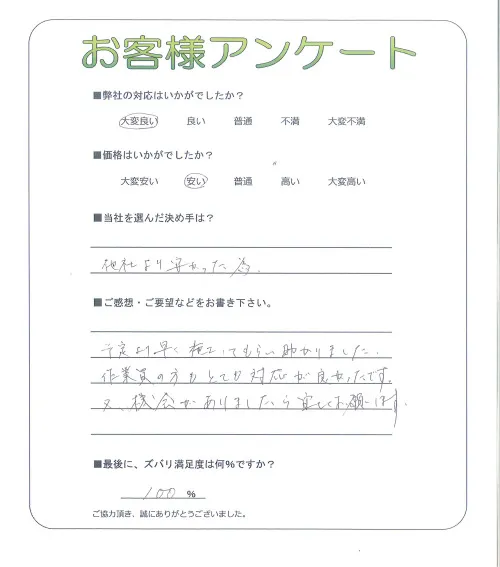 お客様アンケート
■弊社の対応はいかがでしたか？
大変良い 良い 普通 不満 大変不満
■価格はいかがでしたか？
大変安い 安い 普通 高い 大変高い
■当社を選んだ決め手は？
他社より安かった為、
■ご感想・ご要望などをお書き下さい。
予定より早く 施工してもらい助かりました。
作業員の方もとても対応が良かったです。
又、機会がありましたら宜しくお願いします。
■最後に、ズバリ満足度は何％ですか？
100 ％
ご協力頂き、誠にありがとうございました。